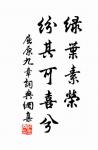 綠葉素榮
紛其可喜兮
屈原九章詞典網集